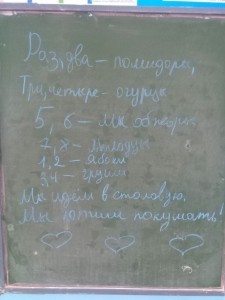 Раз, два — помидоры,
Три, четыре — огурцы
5, 6 — мы обжоры
7, 8 — молодцы
1, 2 — яблоки
3, 4 — груши
Мы идём в столовую.
Мы хотим покушать!